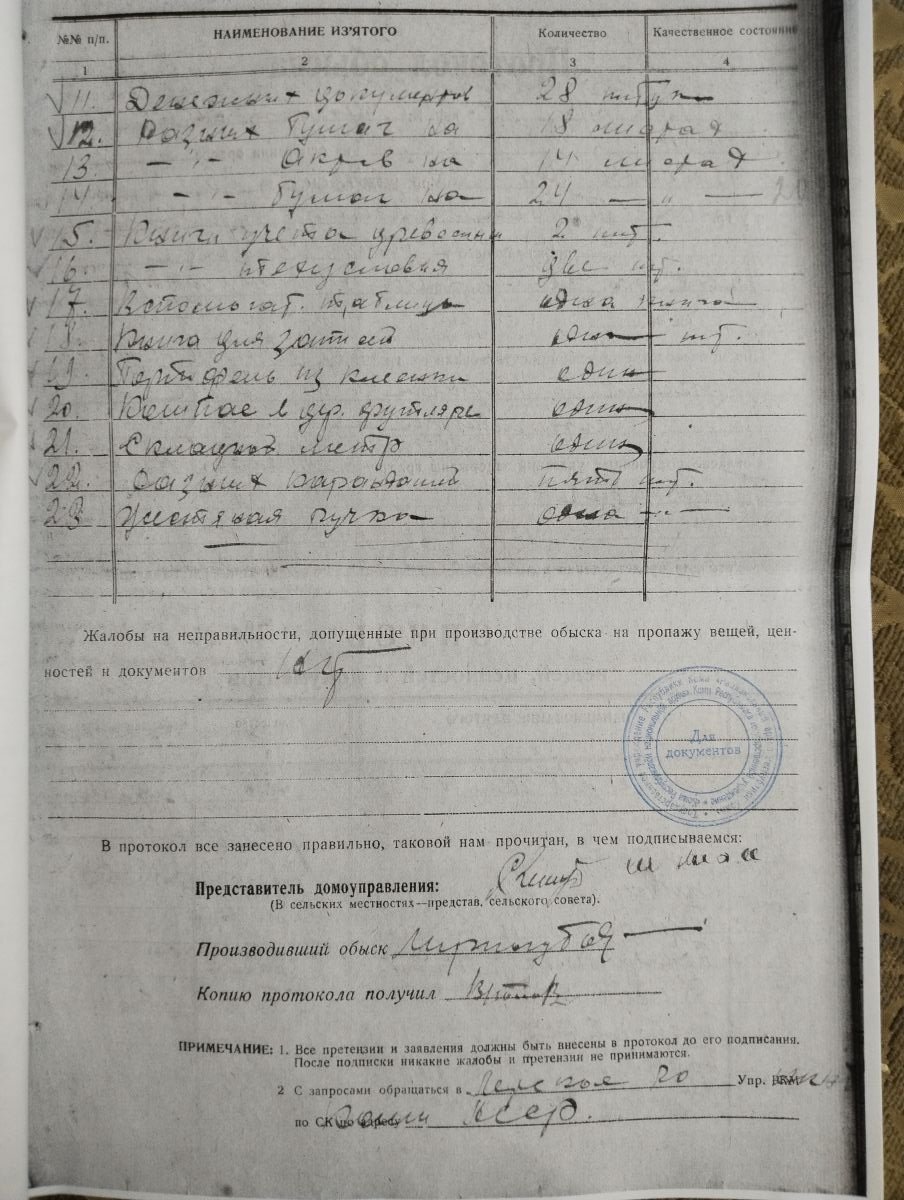 №№ п/п. НАИМЕНОВАНИЕ ИЗ'ЯТОГО Количество Качественное состояние
1 2 3 4
11. Денежных документов 28 штук
12. Разных бумаг на 18 листах
13. —"— Актов на 14 листах
14. —"— бумаг на 24 —"—
15. Книги учета древесины 2 шт.
16. —"— техусловия две шт.
17. Вспомогат. таблицы одна книга
18. Книга для записей одна шт.
19. Портфель из клеенки один
20. Компас в дер. футляре один
21. Складной метр один
22. Разных карандашей пять шт.
23. Жестяная ручка одна —"—
Жалобы на неправильности, допущенные при производстве обыска на пропажу вещей, цен-
ностей и документов нет
Для
документов
В протокол все занесено правильно, таковой нам прочитан, в чем подписываемся:
Представитель домоуправления:
(В сельских местностях—представ. сельского совета).
Производивший обыск
Копию протокола получил
ПРИМЕЧАНИЕ: 1. Все претензии и заявления должны быть внесены в протокол до его подписания.
После подписки никакие жалобы и претензии не принимаются.
2 С запросами обращаться в РО Упр. РКМ
по СК по адресу Коми АССР.